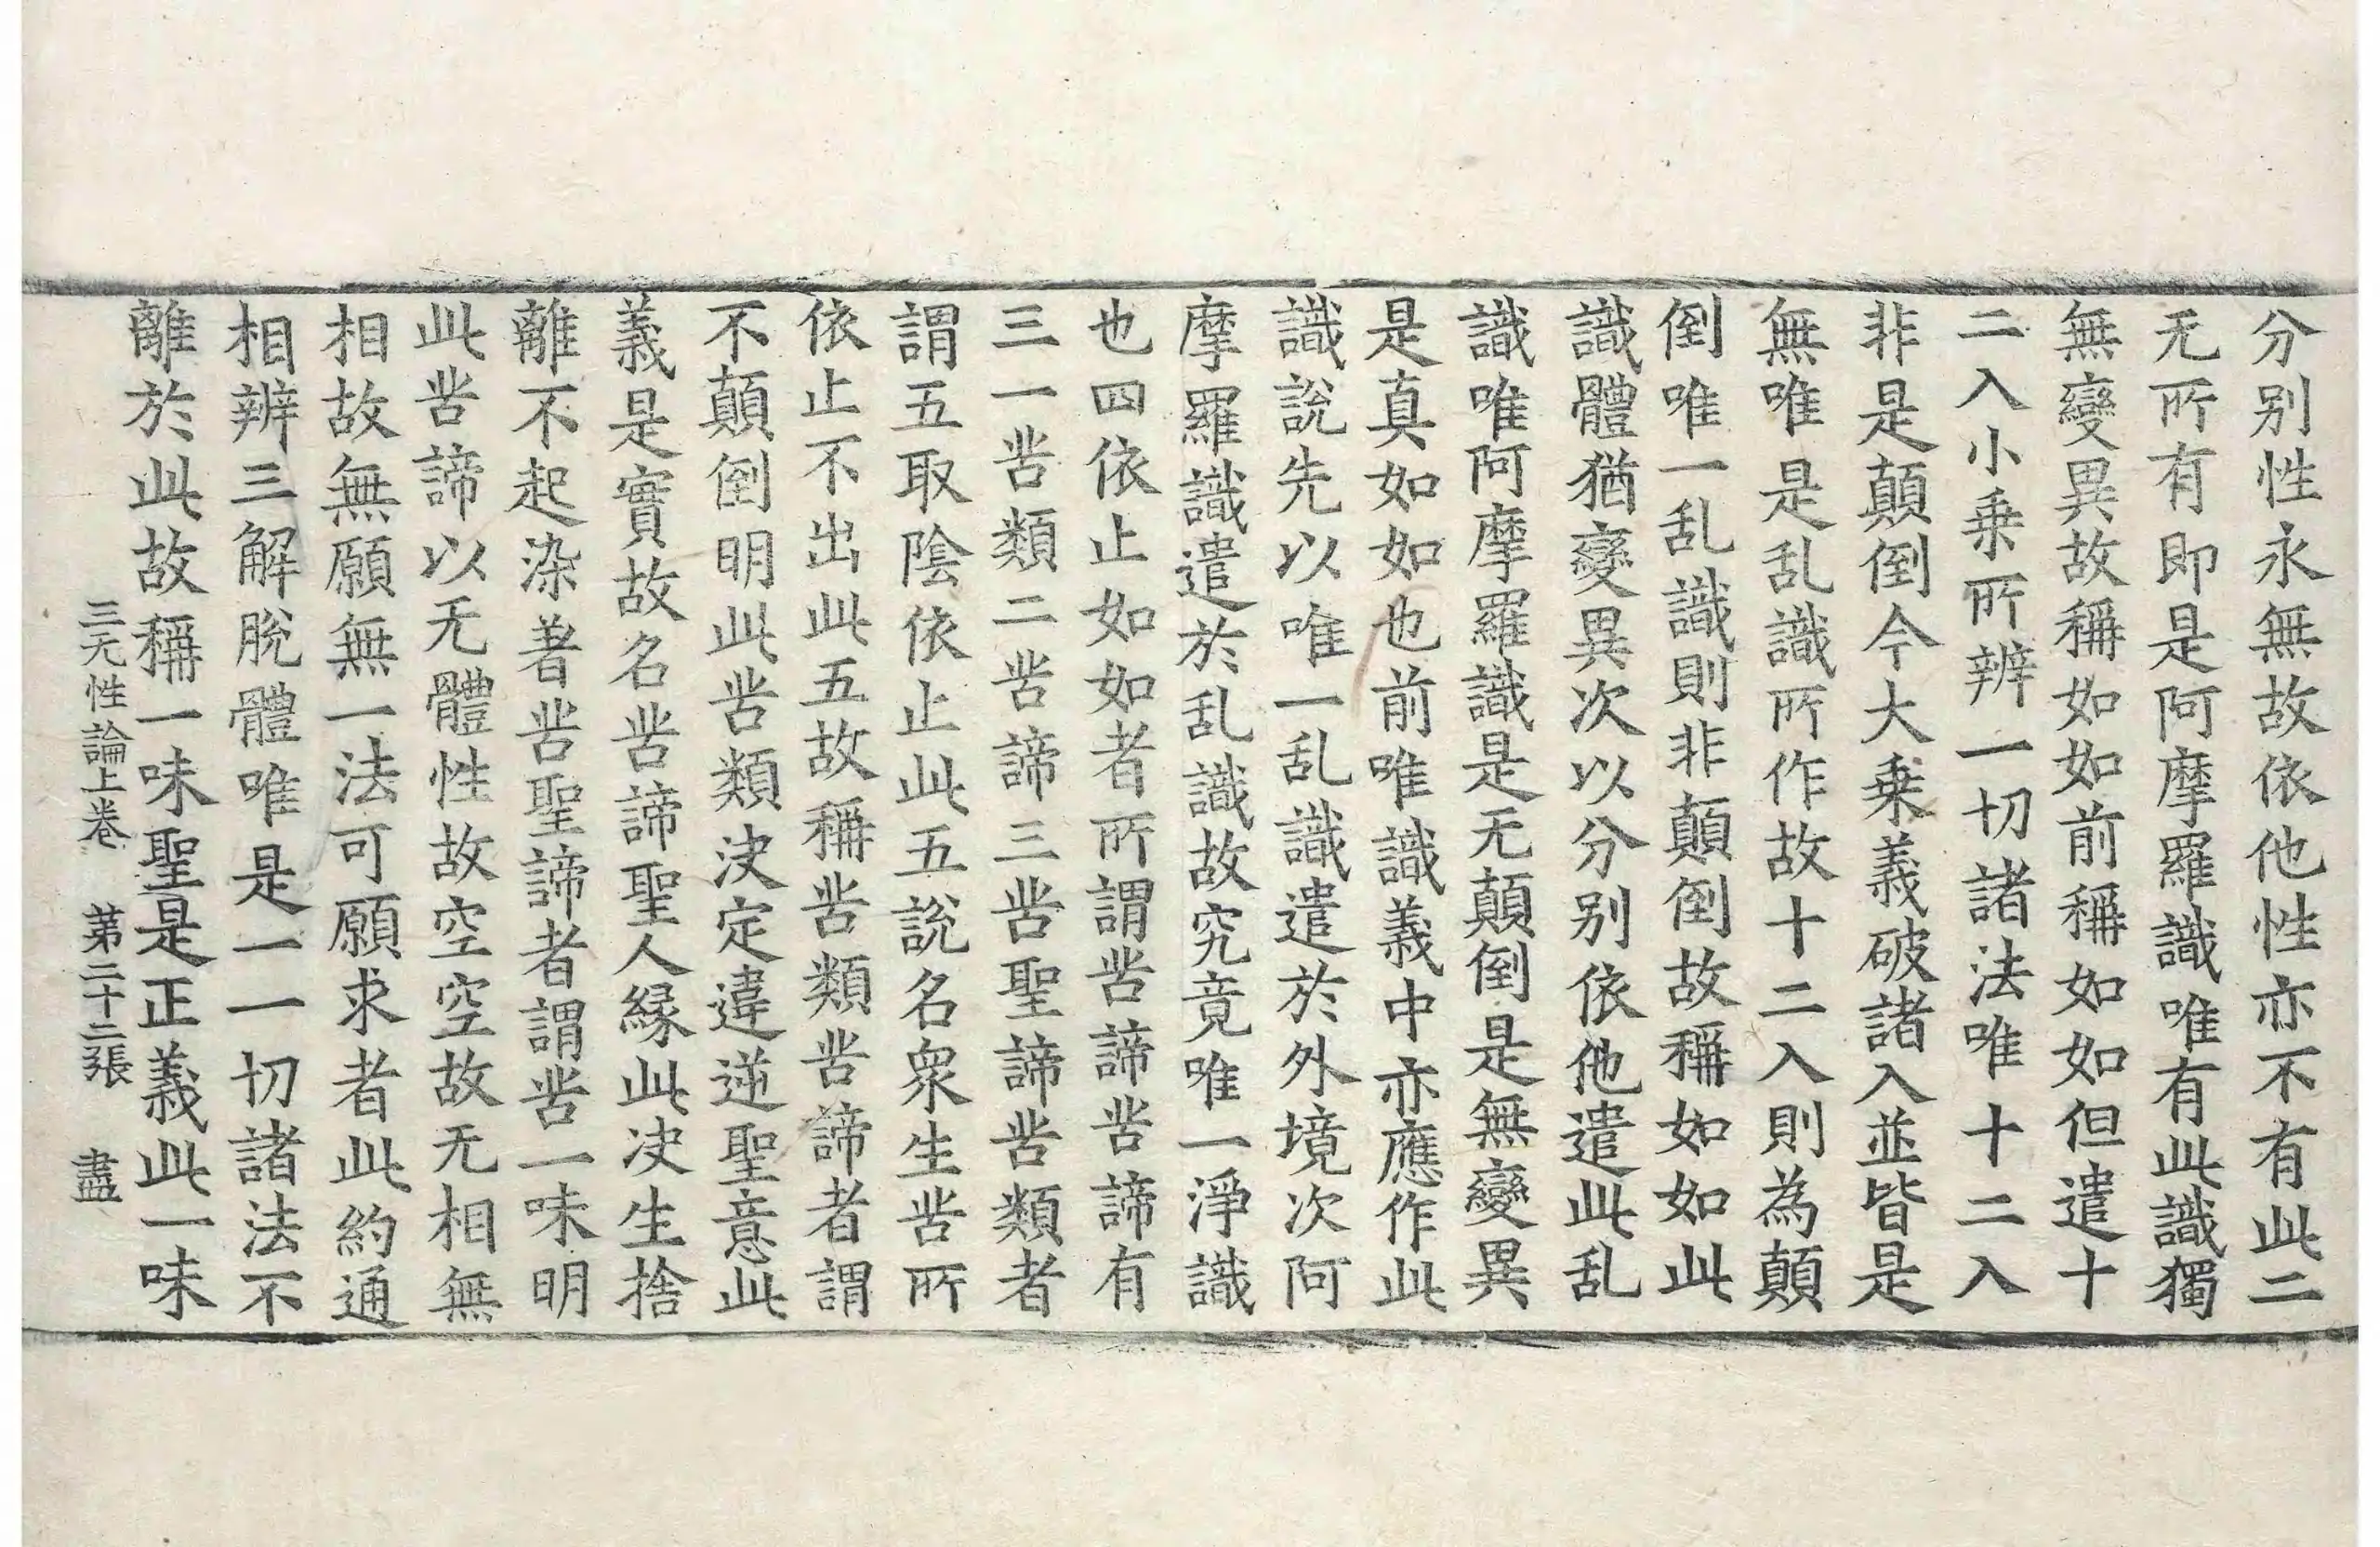 分别性永無故依他性亦不有此二
无所有即是阿摩羅識唯有此識獨
無變異故稱如如前稱如如但遣十
二入小乘所辨一切諸法唯十二入
非是顛倒今大乘義破諸入並皆是
無唯是乱識所作故十二入則為顛
倒唯一乱識則非顛倒故稱如如此
識體猶變異次以分别依他遣此乱
識唯阿摩羅識是无顛倒是無變異
是真如如也前唯識義中亦應作此
識說先以唯一乱識遣於外境次阿
摩羅識遣於乱識故究竟唯一淨識
也四依止如如者所謂苦諦苦諦有
三一苦類二苦諦三苦聖諦苦類者
謂五取陰依止此五說名衆生苦所
依止不出此五故稱苦類苦諦者謂
不顛倒明此苦類決定違逆聖意此
義是實故名苦諦聖人緣此決生捨
離不起染著苦聖諦者謂苦一味明
此苦諦以无體性故空空故无相無
相故無願無一法可願求者此約通
相辨三解脫體唯是一一切諸法不
離於此故稱一味聖是正義此一味
三无性論上卷 第二十二張 盡